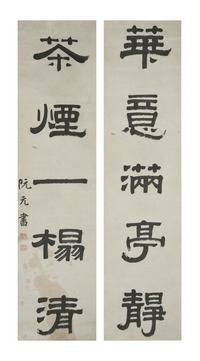 華意滿亭靜
茶煙一榻清
阮元書